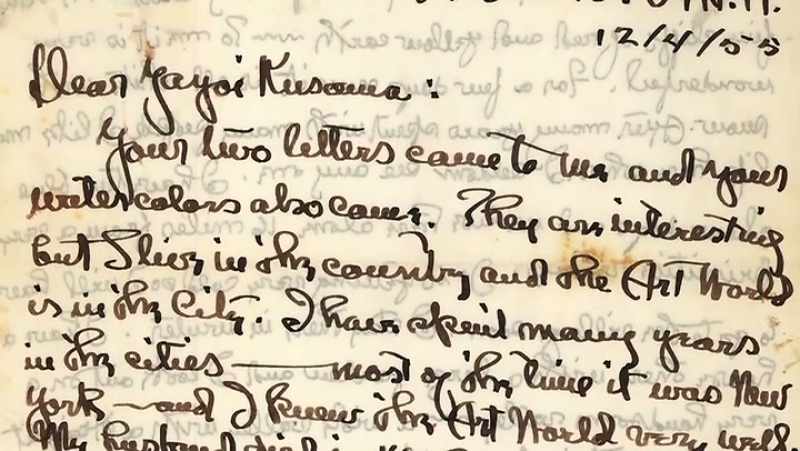 12/4/55
Dear Yayoi Kusama:
Your two letters came to me and your
water colors also came. They are interesting
but I live in the country and the Art World
is in the City. I have spent many years
in the cities — most of the time it was New
York — and I knew the Art World very well.
My husband died in the